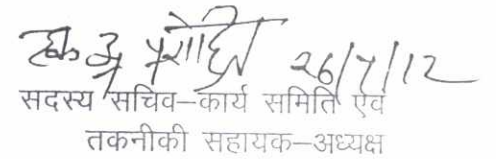 26/7/12
सदस्य सचिव–कार्य समिति एवं
तकनीकी सहायक–अध्यक्ष